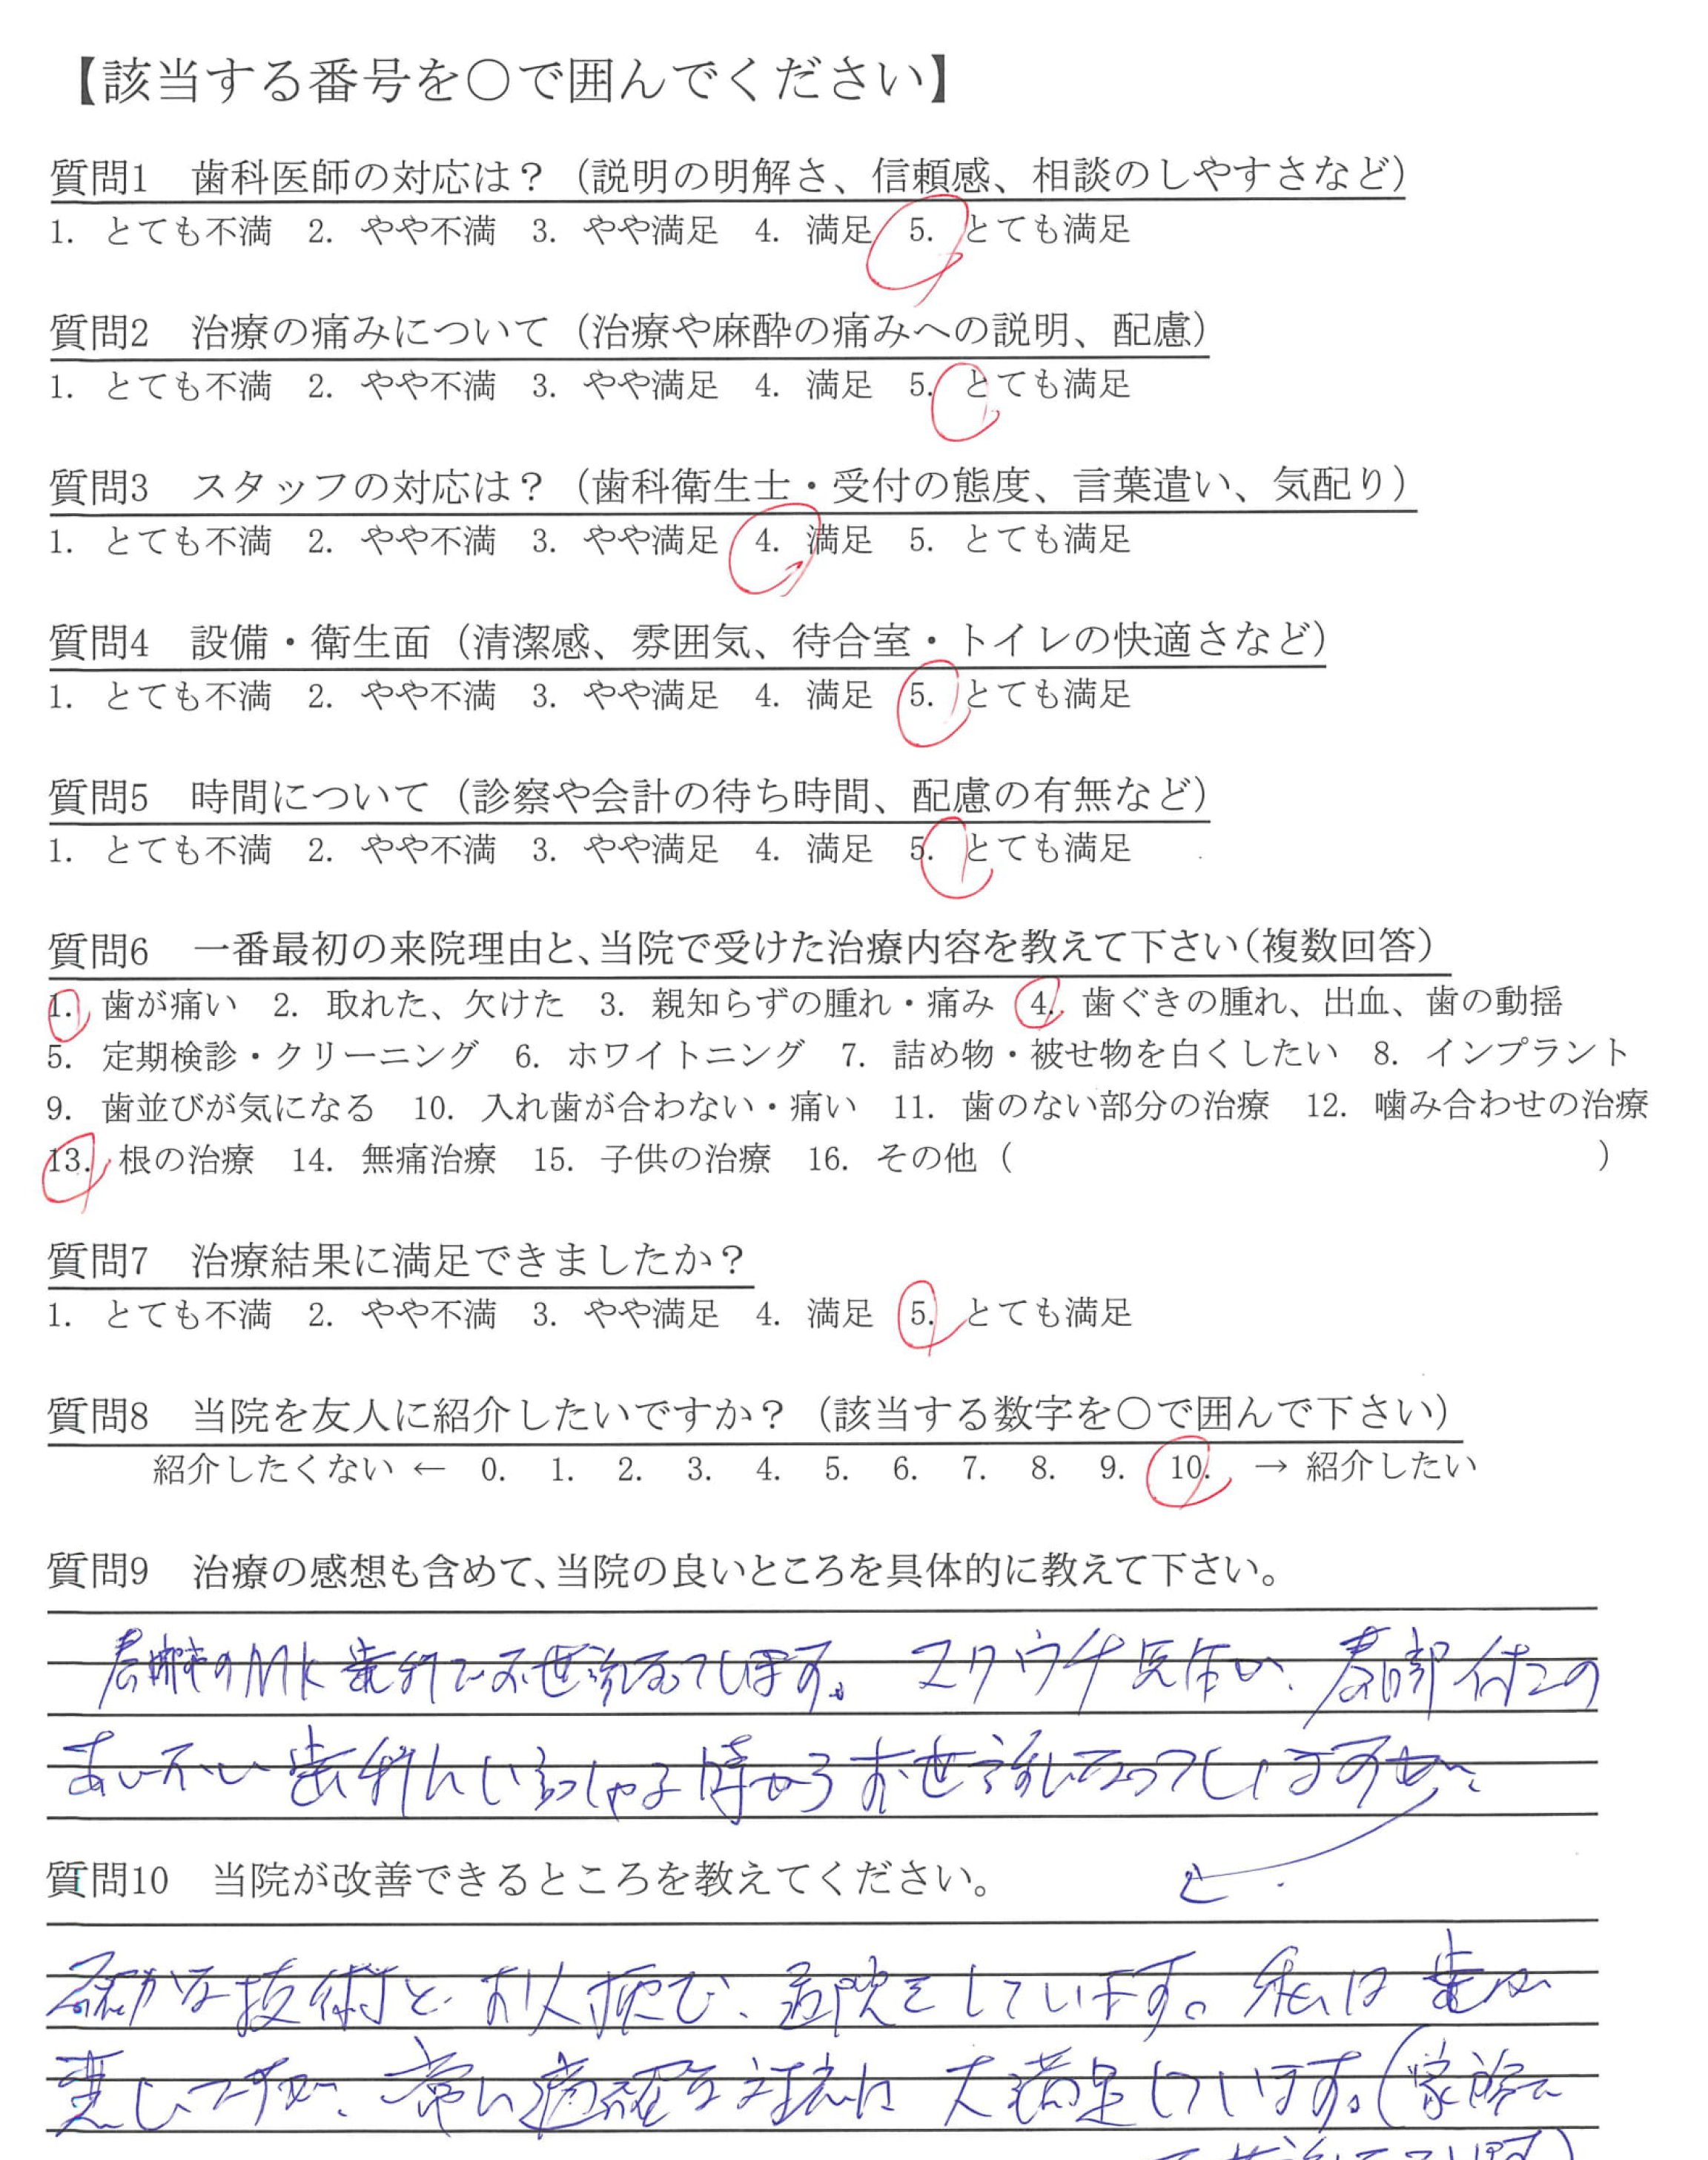 【該当する番号を〇で囲んでください】
質問1 歯科医師の対応は？（説明の明解さ、信頼感、相談のしやすさなど）
1. とても不満 2. やや不満 3. やや満足 4. 満足 5. とても満足
質問2 治療の痛みについて（治療や麻酔の痛みへの説明、配慮）
1. とても不満 2. やや不満 3. やや満足 4. 満足 5. とても満足
質問3 スタッフの対応は？（歯科衛生士・受付の態度、言葉遣い、気配り）
1. とても不満 2. やや不満 3. やや満足 4. 満足 5. とても満足
質問4 設備・衛生面（清潔感、雰囲気、待合室・トイレの快適さなど）
1. とても不満 2. やや不満 3. やや満足 4. 満足 5. とても満足
質問5 時間について（診察や会計の待ち時間、配慮の有無など）
1. とても不満 2. やや不満 3. やや満足 4. 満足 5. とても満足
質問6 一番最初の来院理由と、当院で受けた治療内容を教えて下さい（複数回答）
1. 歯が痛い 2. 取れた、欠けた 3. 親知らずの腫れ・痛み 4. 歯ぐきの腫れ、出血、歯の動揺
5. 定期検診・クリーニング 6. ホワイトニング 7. 詰め物・被せ物を白くしたい 8. インプラント
9. 歯並びが気になる 10. 入れ歯が合わない・痛い 11. 歯のない部分の治療 12. 噛み合わせの治療
13. 根の治療 14. 無痛治療 15. 子供の治療 16. その他（ ）
質問7 治療結果に満足できましたか？
1. とても不満 2. やや不満 3. やや満足 4. 満足 5. とても満足
質問8 当院を友人に紹介したいですか？（該当する数字を〇で囲んで下さい）
紹介したくない ← 0. 1. 2. 3. 4. 5. 6. 7. 8. 9. 10. → 紹介したい
質問9 治療の感想も含めて、当院の良いところを具体的に教えて下さい。
MK歯科でお世話になっています。マクウチ先生が、春日部
歯科にいらっしゃる時からお世話になっていますが、
質問10 当院が改善できるところを教えてください。
確かな技術とお人柄で、通院をしています。私は歯が
悪いですが、常に適確な対応に大満足しています。（家族で